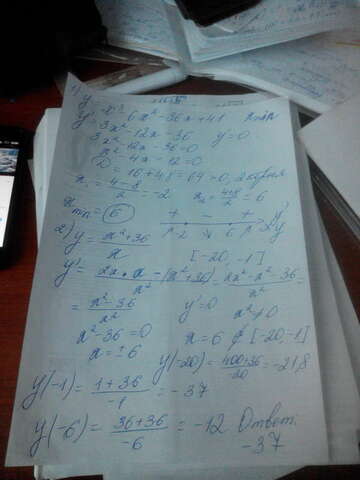 1) y = x³ - 6x² - 36x + 41 xmin
y' = 3x² - 12x - 36 y' = 0
3x² - 12x - 36 = 0
x² - 4x - 12 = 0
D = 16 + 48 = 64 > 0, 2 корня
x₁ = (4-8)/2 = -2 x₂ = (4+8)/2 = 6
xmin = 6
+ - + y'
-2 6 y
2) y = (x² + 36)/x [-20, -1]
y' = (2x · x - (x² + 36))/x² = (2x² - x² - 36)/x² =
= (x² - 36)/x² y' = 0 x² ≠ 0
x² - 36 = 0 x = 6 ∉ [-20, -1]
x = ±6 y(-20) = (400+36)/-20 = -21,8
y(-1) = (1 + 36)/-1 = -37
y(-6) = (36+36)/-6 = -12 Ответ:
-37